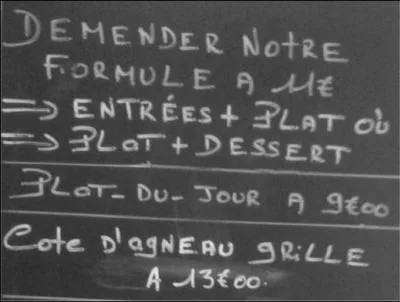 DEMENDER NOTRE
FORMULE A 11€
=> ENTRÉES + PLAT OÙ
=> PLAT + DESSERT
PLAT-DU-JOUR A 9€00
Cote D'AGNEAU GRILLE
A 13€00.